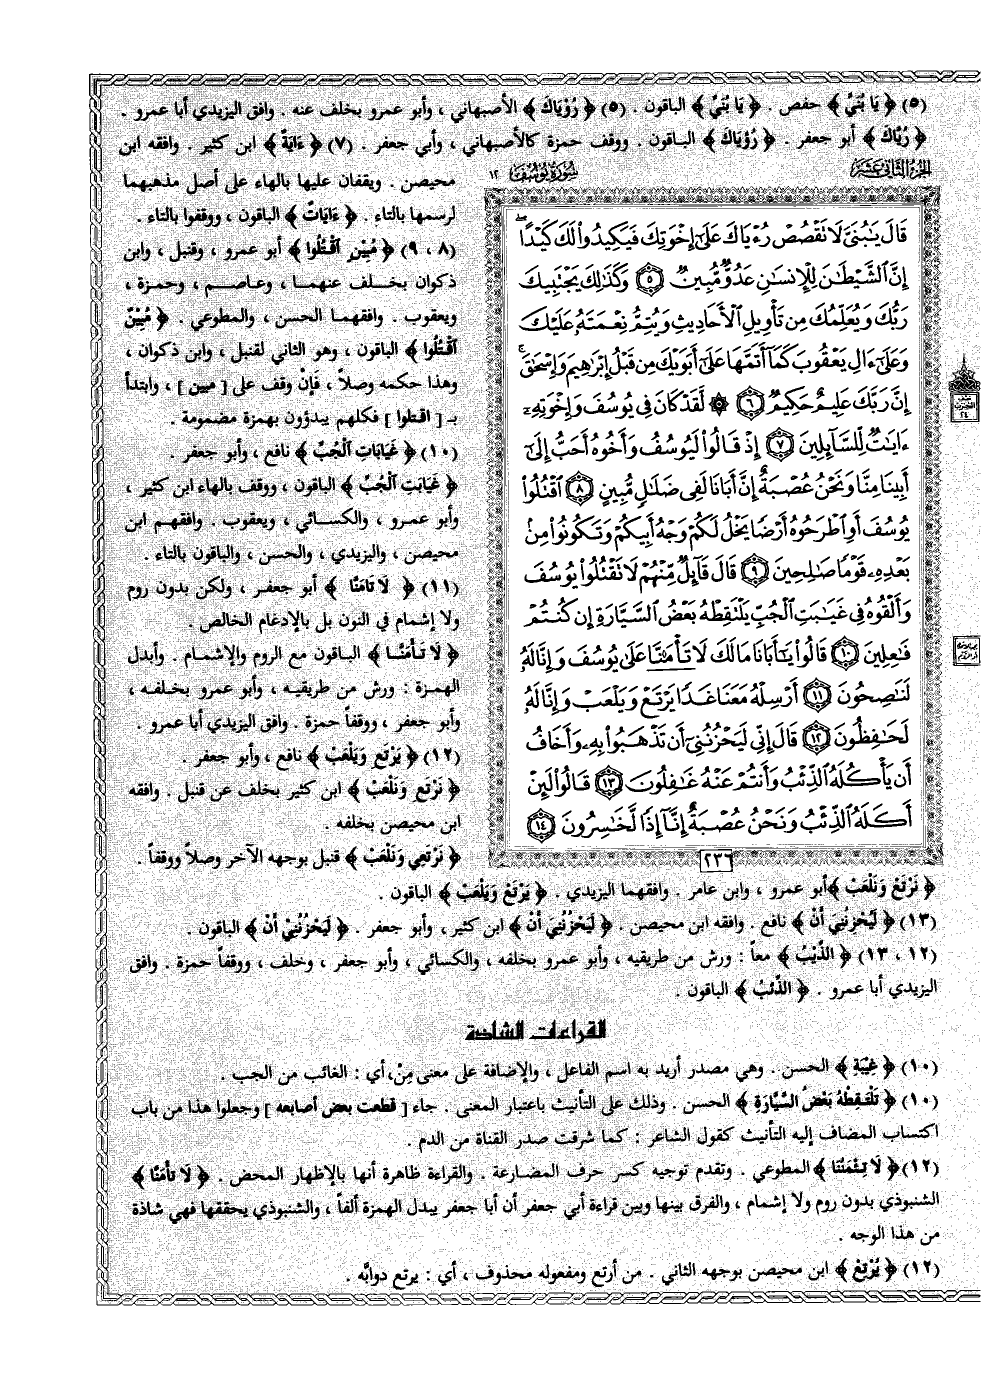 (٥) ﴿ يَا بُنَيَّ ﴾ حفص . ﴿ يَا بُنَيِّ ﴾ الباقون . (٥) ﴿ رُوْيَاكَ ﴾ الأصبهاني ، وأبو عمرو بخلف عنه . وافق اليزيدي أبا عمرو .
﴿ رُيَّاكَ ﴾ أبو جعفر . ﴿ رُؤْيَاكَ ﴾ الباقون . ووقف حمزة كالأصبهاني ، وأبي جعفر . (٧) ﴿ ءَايَةٌ ﴾ ابن كثير . وافقه ابن
محيصن . ويقفان عليها بالهاء على أصل مذهبهما
لرسمها بالتاء . ﴿ ءَايَاتٌ ﴾ الباقون ، ووقفوا بالتاء .
(٨ ، ٩) ﴿ مُبِيْنٍ اقْتُلُوا ﴾ أبو عمرو ، وقنبل ، وابن
ذكوان بخلف عنهما ، وعاصم ، وحمزة ،
ويعقوب . وافقهما الحسن ، والمطوعي . ﴿ مُبِيْنٌ
اقْتُلُوا ﴾ الباقون ، وهو الثاني لقنبل ، وابن ذكوان ،
وهذا حكمه وصلاً ، فَإِنْ وقف على [ مبين ] ، وابتدأ
بـ [ اقتلوا ] فكلهم يبدؤون بهمزة مضمومة .
(١٠) ﴿ غَيَابَاتِ الْجُبِّ ﴾ نافع ، وأبو جعفر .
﴿ غَيَابَتِ الْجُبِّ ﴾ الباقون ، ووقف بالهاء ابن كثير ،
وأبو عمرو ، والكسائي ، ويعقوب . وافقهم ابن
محيصن ، واليزيدي ، والحسن ، والباقون بالتاء .
(١١) ﴿ لَا تَامَنَّا ﴾ أبو جعفر ، ولكن بدون روم
ولا إشمام في النون بل بالإدغام الخالص .
﴿ لَا تَأْمَنَّا ﴾ الباقون مع الروم والإشمام . وأبدل
الهمزة : ورش من طريقيه ، وأبو عمرو بخلفه ،
وأبو جعفر ، ووقفاً حمزة . وافق اليزيدي أبا عمرو .
(١٢) ﴿ يَرْتَعِ وَيَلْعَبْ ﴾ نافع ، وأبو جعفر .
﴿ نَرْتَعِ وَنَلْعَبْ ﴾ ابن كثير بخلف عن قنبل . وافقه
ابن محيصن بخلفه .
﴿ نَرْتَعِي وَنَلْعَبْ ﴾ قنبل بوجهه الآخر وصلاً ووقفاً .
الجزء الثاني عشر
سورة يوسف ١٢
قَالَ يَٰبُنَيَّ لَا تَقْصُصْ رُءْيَاكَ عَلَىٰٓ إِخْوَتِكَ فَيَكِيدُوا۟ لَكَ كَيْدًا ۖ
إِنَّ ٱلشَّيْطَٰنَ لِلْإِنسَٰنِ عَدُوٌّ مُّبِينٌ ٥ وَكَذَٰلِكَ يَجْتَبِيكَ
رَبُّكَ وَيُعَلِّمُكَ مِن تَأْوِيلِ ٱلْأَحَادِيثِ وَيُتِمُّ نِعْمَتَهُۥ عَلَيْكَ
وَعَلَىٰٓ ءَالِ يَعْقُوبَ كَمَآ أَتَمَّهَا عَلَىٰٓ أَبَوَيْكَ مِن قَبْلُ إِبْرَٰهِيمَ وَإِسْحَٰقَ ۚ
إِنَّ رَبَّكَ عَلِيمٌ حَكِيمٌ ٦ ۞ لَّقَدْ كَانَ فِى يُوسُفَ وَإِخْوَتِهِۦٓ
ءَايَٰتٌ لِّلسَّآئِلِينَ ٧ إِذْ قَالُوا۟ لَيُوسُفُ وَأَخُوهُ أَحَبُّ إِلَىٰٓ
أَبِينَا مِنَّا وَنَحْنُ عُصْبَةٌ إِنَّ أَبَانَا لَفِى ضَلَٰلٍ مُّبِينٍ ٨ ٱقْتُلُوا۟
يُوسُفَ أَوِ ٱطْرَحُوهُ أَرْضًا يَخْلُ لَكُمْ وَجْهُ أَبِيكُمْ وَتَكُونُوا۟ مِنۢ
بَعْدِهِۦ قَوْمًا صَٰلِحِينَ ٩ قَالَ قَآئِلٌ مِّنْهُمْ لَا تَقْتُلُوا۟ يُوسُفَ
وَأَلْقُوهُ فِى غَيَٰبَتِ ٱلْجُبِّ يَلْتَقِطْهُ بَعْضُ ٱلسَّيَّارَةِ إِن كُنتُمْ
فَٰعِلِينَ ١٠ قَالُوا۟ يَٰٓأَبَانَا مَا لَكَ لَا تَأْمَ۫نَّا عَلَىٰ يُوسُفَ وَإِنَّا لَهُۥ
لَنَٰصِحُونَ ١١ أَرْسِلْهُ مَعَنَا غَدًا يَرْتَعْ وَيَلْعَبْ وَإِنَّا لَهُۥ
لَحَٰفِظُونَ ١٢ قَالَ إِنِّى لَيَحْزُنُنِىٓ أَن تَذْهَبُوا۟ بِهِۦ وَأَخَافُ
أَن يَأْكُلَهُ ٱلذِّئْبُ وَأَنتُمْ عَنْهُ غَٰفِلُونَ ١٣ قَالُوا۟ لَئِنْ
أَكَلَهُ ٱلذِّئْبُ وَنَحْنُ عُصْبَةٌ إِنَّآ إِذًا لَّخَٰسِرُونَ ١٤
٢٣٦
﴿ نَرْتَعْ وَنَلْعَبْ ﴾ أبو عمرو ، وابن عامر . وافقهما اليزيدي . ﴿ يَرْتَعْ وَيَلْعَبْ ﴾ الباقون .
(١٣) ﴿ لَيُحْزِنُنِيَ أَنْ ﴾ نافع . وافقه ابن محيصن . ﴿ لَيَحْزُنُنِيَ أَنْ ﴾ ابن كثير ، وأبو جعفر . ﴿ لَيَحْزُنُنِيْ أَنْ ﴾ الباقون .
(١٢ ، ١٣) ﴿ الذِّيْبُ ﴾ معاً : ورش من طريقيه ، وأبو عمرو بخلفه ، والكسائي ، وأبو جعفر ، وخلف ، ووقفاً حمزة . وافق
اليزيدي أبا عمرو . ﴿ الذِّئْبُ ﴾ الباقون .
القراءات الشاذة
(١٠) ﴿ غَيْبَةِ ﴾ الحسن . وهي مصدر أريد به اسم الفاعل ، والإضافة على معنى مِنْ ، أي : الغائب من الجب .
(١٠) ﴿ تَلْتَقِطْهُ بَعْضُ السَّيَّارَةِ ﴾ الحسن . وذلك على التأنيث باعتبار المعنى . جاء [ قطعت بعض أصابعه ] وجعلوا هذا من باب
اكتساب المضاف إليه التأنيث كقول الشاعر : كما شرقت صدر القناة من الدم .
(١٢) ﴿ لَا تِئْمَنُنَا ﴾ المطوعي . وتقدم توجيه كسر حرف المضارعة . والقراءة ظاهرة أنها بالإظهار المحض . ﴿ لَا تَأْمَنَّا ﴾
الشنبوذي بدون روم ولا إشمام ، والفرق بينها وبين قراءة أبي جعفر أن أبا جعفر يبدل الهمزة ألفاً ، والشنبوذي يحققها فهي شاذة
من هذا الوجه .
(١٢) ﴿ يُرْتِعْ ﴾ ابن محيصن بوجهه الثاني . من أرتع ومفعوله محذوف ، أي : يرتع دوابَّه .